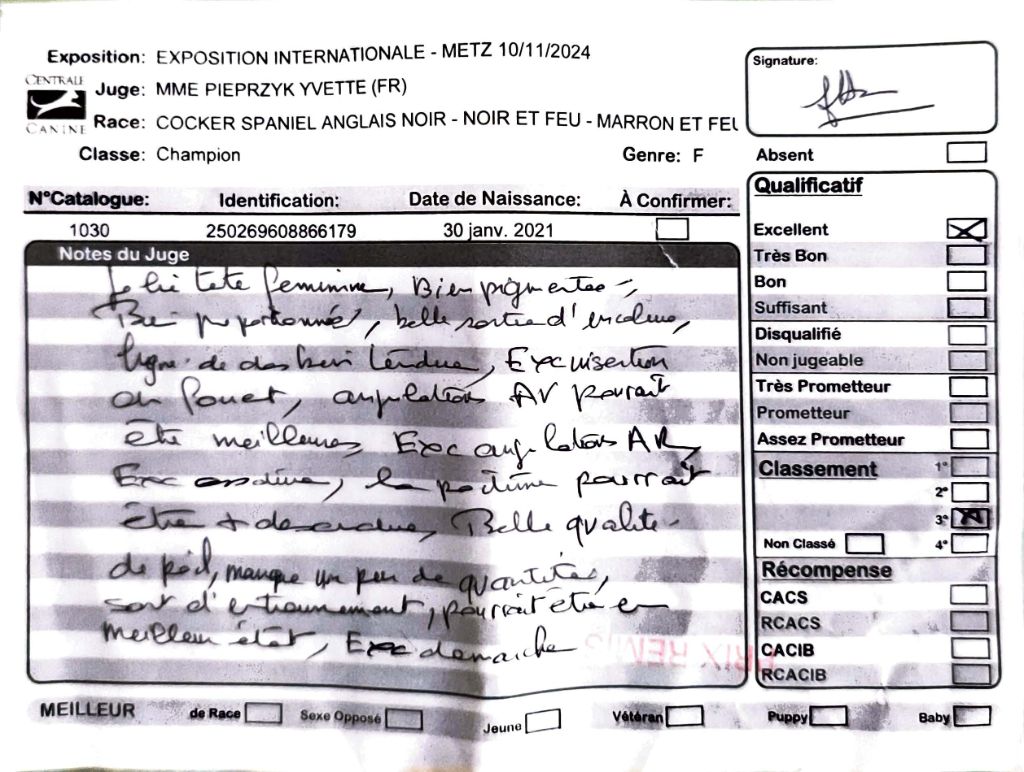 Exposition: EXPOSITION INTERNATIONALE - METZ 10/11/2024
CENTRALE
CANINE
Juge: MME PIEPRZYK YVETTE (FR)
Race: COCKER SPANIEL ANGLAIS NOIR - NOIR ET FEU - MARRON ET FEU
Classe: Champion Genre: F
N°Catalogue: Identification: Date de Naissance: À Confirmer:
1030 250269608866179 30 janv. 2021
Notes du Juge
Jolie tete feminine, Bien pigmentée,
Bien proportionnée, belle sortie d'encolure,
ligne de dos bien tendue, Exc insertion
du fouet, angulations AV pourrait
être meilleures, Exc angulations AR,
Exc ossature, la poitrine pourrait
être + descendue, Belle qualité
de poil, manque un peu de quantités,
sort d'entrainement, pourrait être en
meilleur état, Exc démarche
PRIX REMIS
Signature:
Absent
Qualificatif
Excellent
Très Bon
Bon
Suffisant
Disqualifié
Non jugeable
Très Prometteur
Prometteur
Assez Prometteur
Classement 1°
2°
3°
Non Classé 4°
Récompense
CACS
RCACS
CACIB
RCACIB
MEILLEUR de Race Sexe Opposé Jeune Vétéran Puppy Baby